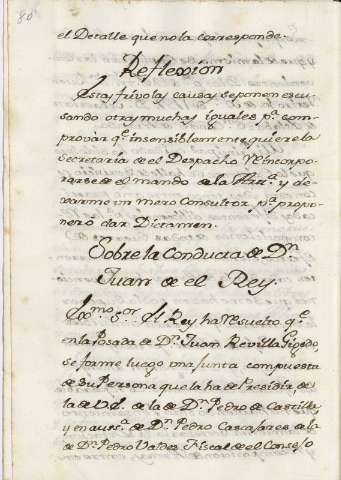 80
el Detalle que no la corresponde.
Reflexion
Estas frívolas causas se ponen escu-
sando otras muchas iguales pª. com-
provar qe. insensiblemente quiere la
Secretaria de el Despacho reincorpo-
rarse de el mando de la Artª. y de-
xarme un mero Consultor pª. propo-
ner ó dar Dictamen.
Sobre la Conducta de Dn.
Juan de el Rey.
Exmo. Sor. El Rey ha resuelto qe.
en la Posada de Dn. Juan Revilla Gigedo,
se forme luego una Junta compuesta
de su Persona que la ha de Presidir, de
la de V.S. de la de Dn. Pedro de Castilla,
y en aussa. de Dn. Pedro Casafares, de la
de Dn. Pedro Valdes Fiscal de el Consejo